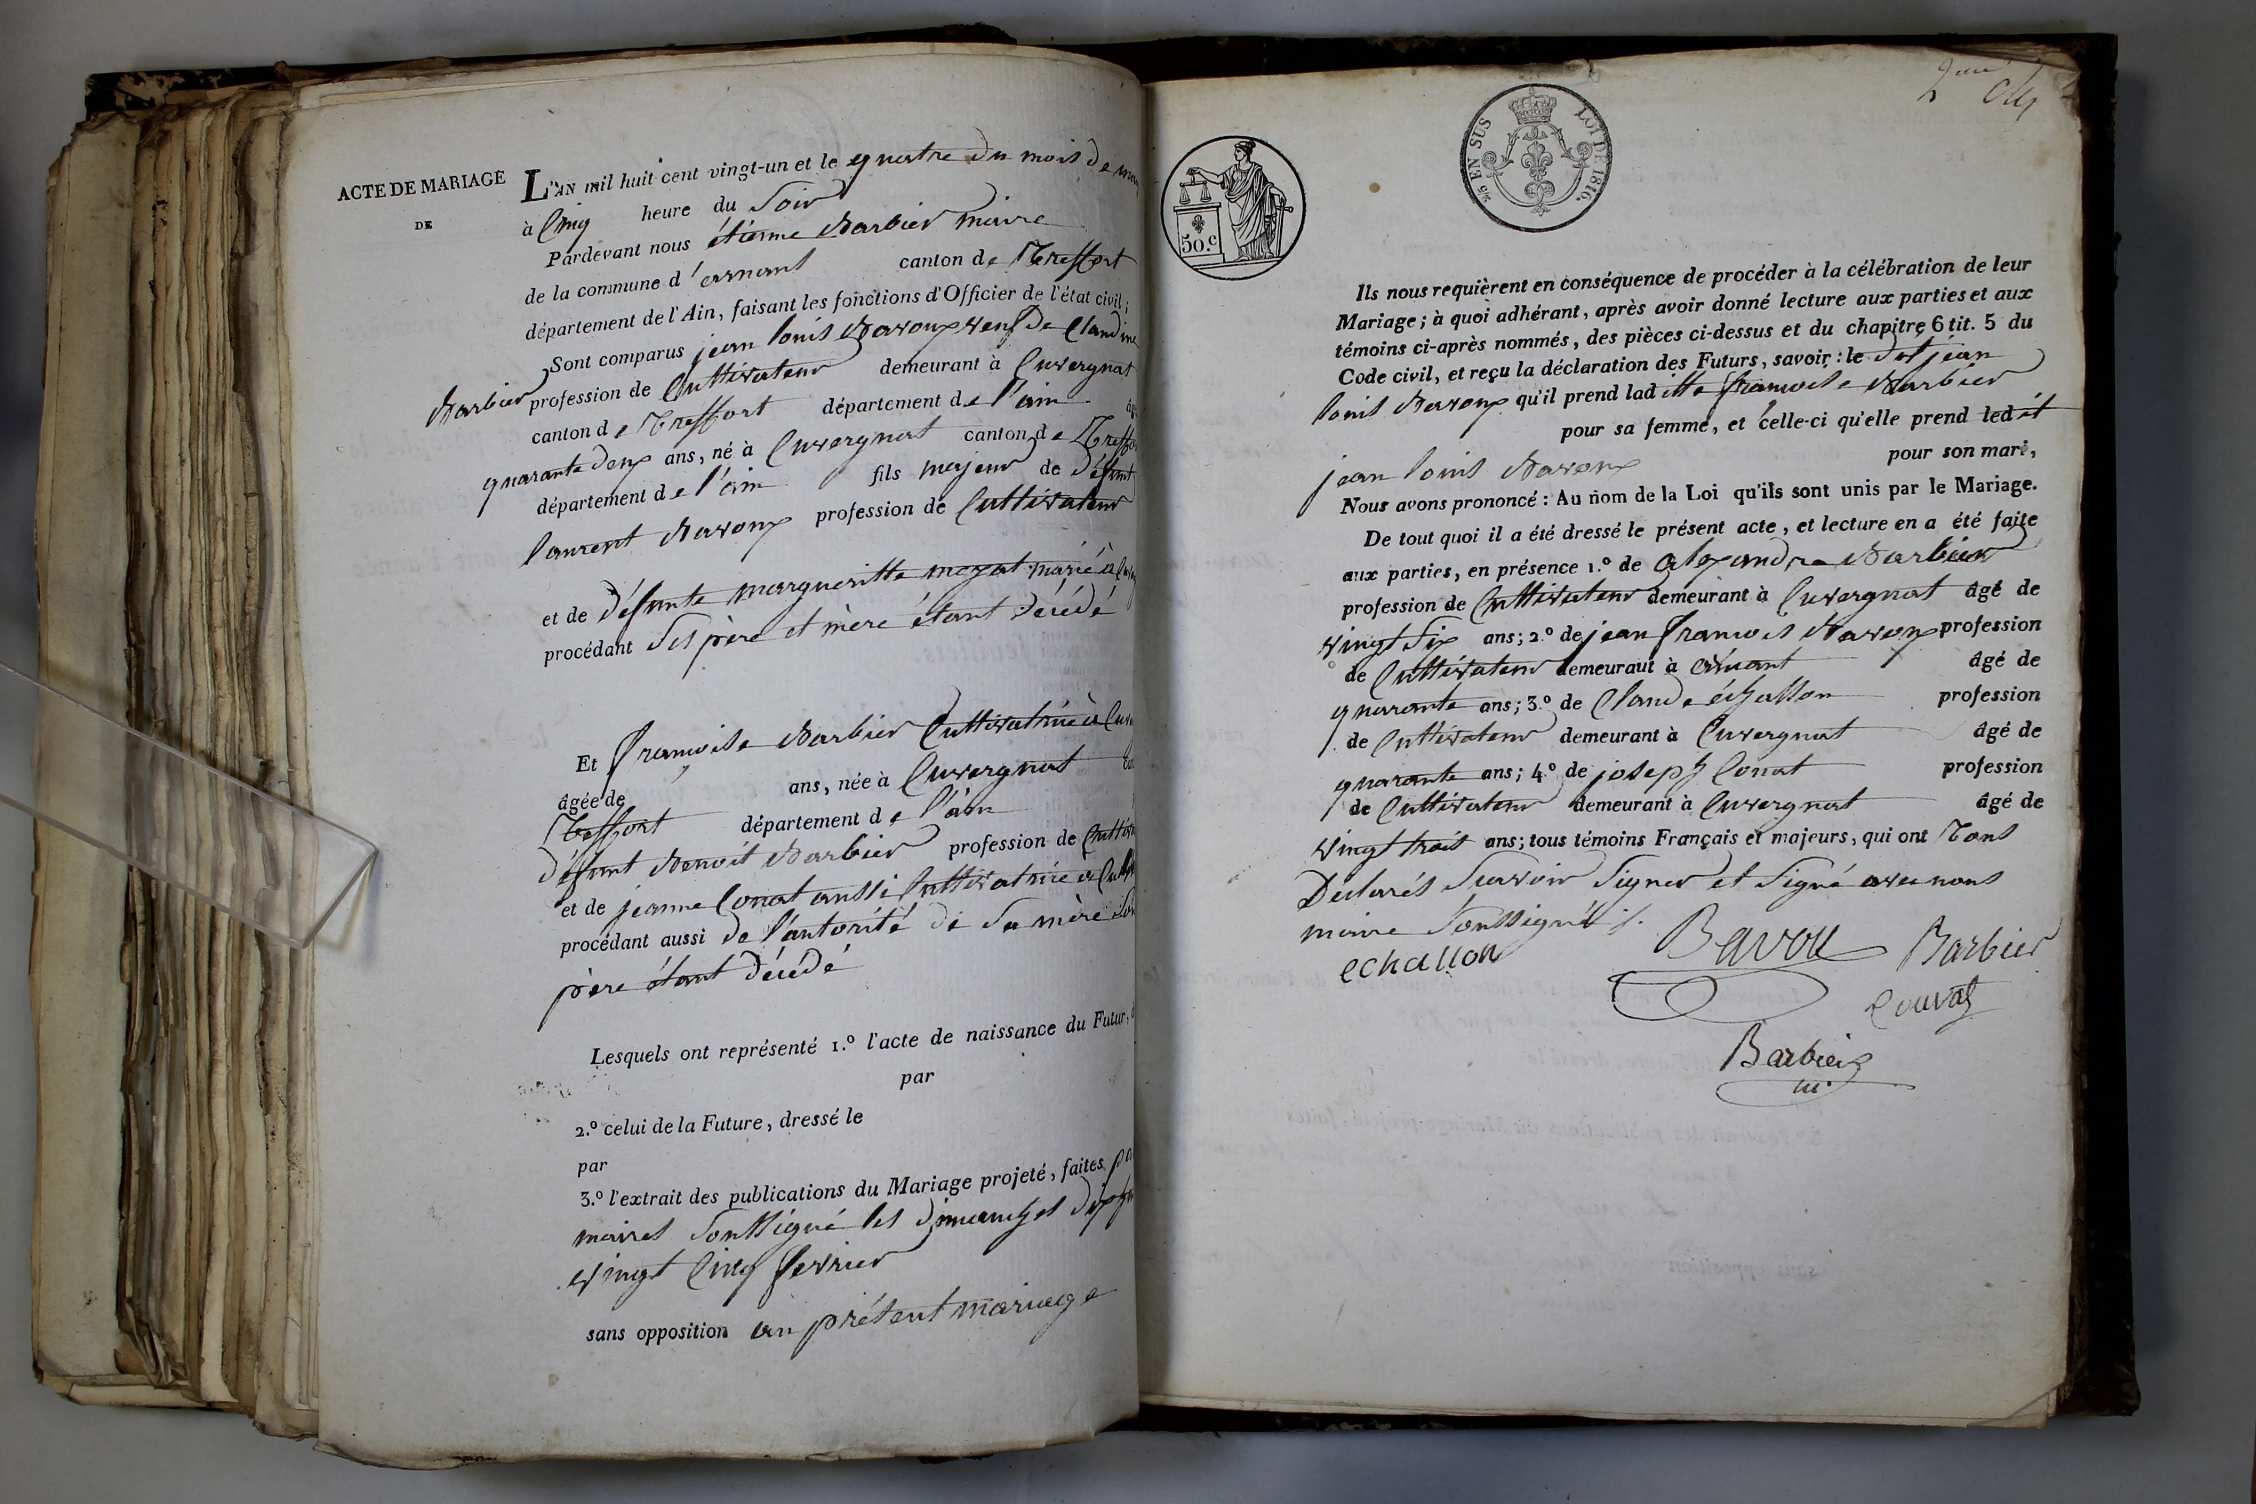 ACTE DE MARIAGE
DE
L'AN mil huit cent vingt-un et le quatre du mois de
à Cinq heure du Soir
Pardevant nous étienne Barbier maire
de la commune d'arnans canton de Treffort
département de l'Ain, faisant les fonctions d'Officier de l'état civil;
Sont comparus jean louis Bavoux veuf de Claudine
Barbier profession de Cultivateur demeurant à Cuvergnat
canton de Treffort département de l'ain
quarante deux ans, né à Cuvergnat canton de Treffort
département de l'ain fils majeur de défunt
laurent Bavoux profession de Cultivateur
et de défunte margueritte mozat marié à
procédant Ses père et mère étant décédé
Et françoise Barbier Cultivatrice à
âgée de ans, née à Cuvergnat
Treffort département de l'ain
défunt Benoit Barbier profession de
et de jeanne Conat aussi Cultivatrice à
procédant aussi de l'autorité de Sa mère Son
père étant décédé
Lesquels ont représenté 1.º l'acte de naissance du Futur,
par
2.º celui de la Future, dressé le
par
3.º l'extrait des publications du Mariage projeté, faites
maires Soussigné les dimanches
vingt Cinq fevrier
sans opposition au présent mariage
50.c
2/5 EN SUS LOI DE 1816.
2
Ils nous requièrent en conséquence de procéder à la célébration de leur
Mariage; à quoi adhérant, après avoir donné lecture aux parties et aux
témoins ci-après nommés, des pièces ci-dessus et du chapitre 6 tit. 5 du
Code civil, et reçu la déclaration des Futurs, savoir: le dit jean
louis Bavoux qu'il prend laditte françoise Barbier
pour sa femme, et celle-ci qu'elle prend ledit
jean louis Bavoux pour son mari,
Nous avons prononcé: Au nom de la Loi qu'ils sont unis par le Mariage.
De tout quoi il a été dressé le présent acte, et lecture en a été faite
aux parties, en présence 1.º de alexandre Barbier
profession de Cultivateur demeurant à Cuvergnat âgé de
vingt Six ans; 2.º de jean françois Bavoux profession
de Cultivateur demeurant à arnant âgé de
quarante ans; 3.º de Claude échallon profession
de Cultivateur demeurant à Cuvergnat âgé de
quarante ans; 4.º de joseph Conat profession
de Cultivateur demeurant à Cuvergnat âgé de
vingt trois ans; tous témoins Français et majeurs, qui ont Tous
Declarés Savoir Signer et Signé avec nous
maire Soussignés
echallon Bavou Barbier
Couvat
Barbier